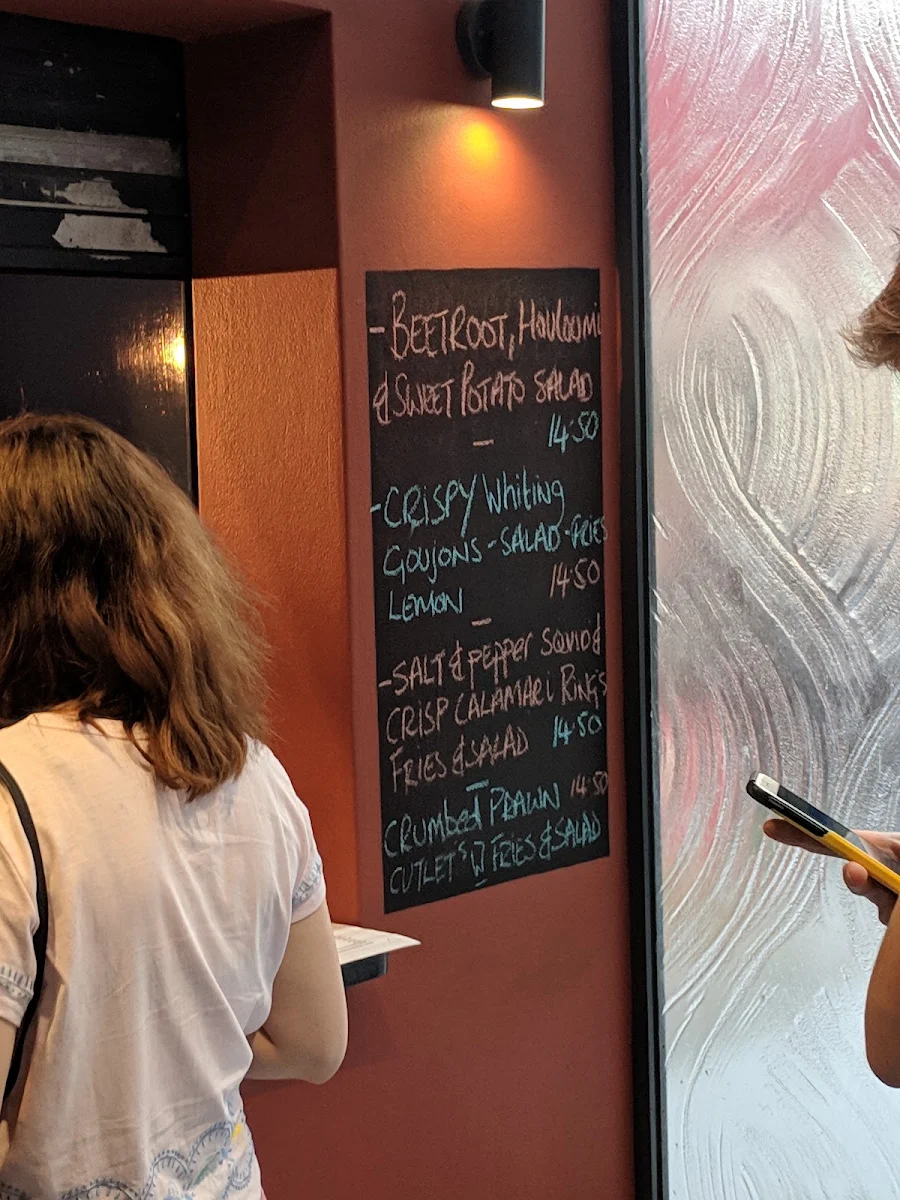 - BEETROOT, Hauloumi
& SWEET POTATO SALAD
14.50
- CRISPY Whiting
GOUJONS - SALAD - FRIES
LEMON 14.50
- SALT & PEPPER SQUID &
CRISP CALAMARI RINGS
FRIES & SALAD 14.50
CRUMBED PRAWN 14.50
CUTLETS W FRIES & SALAD